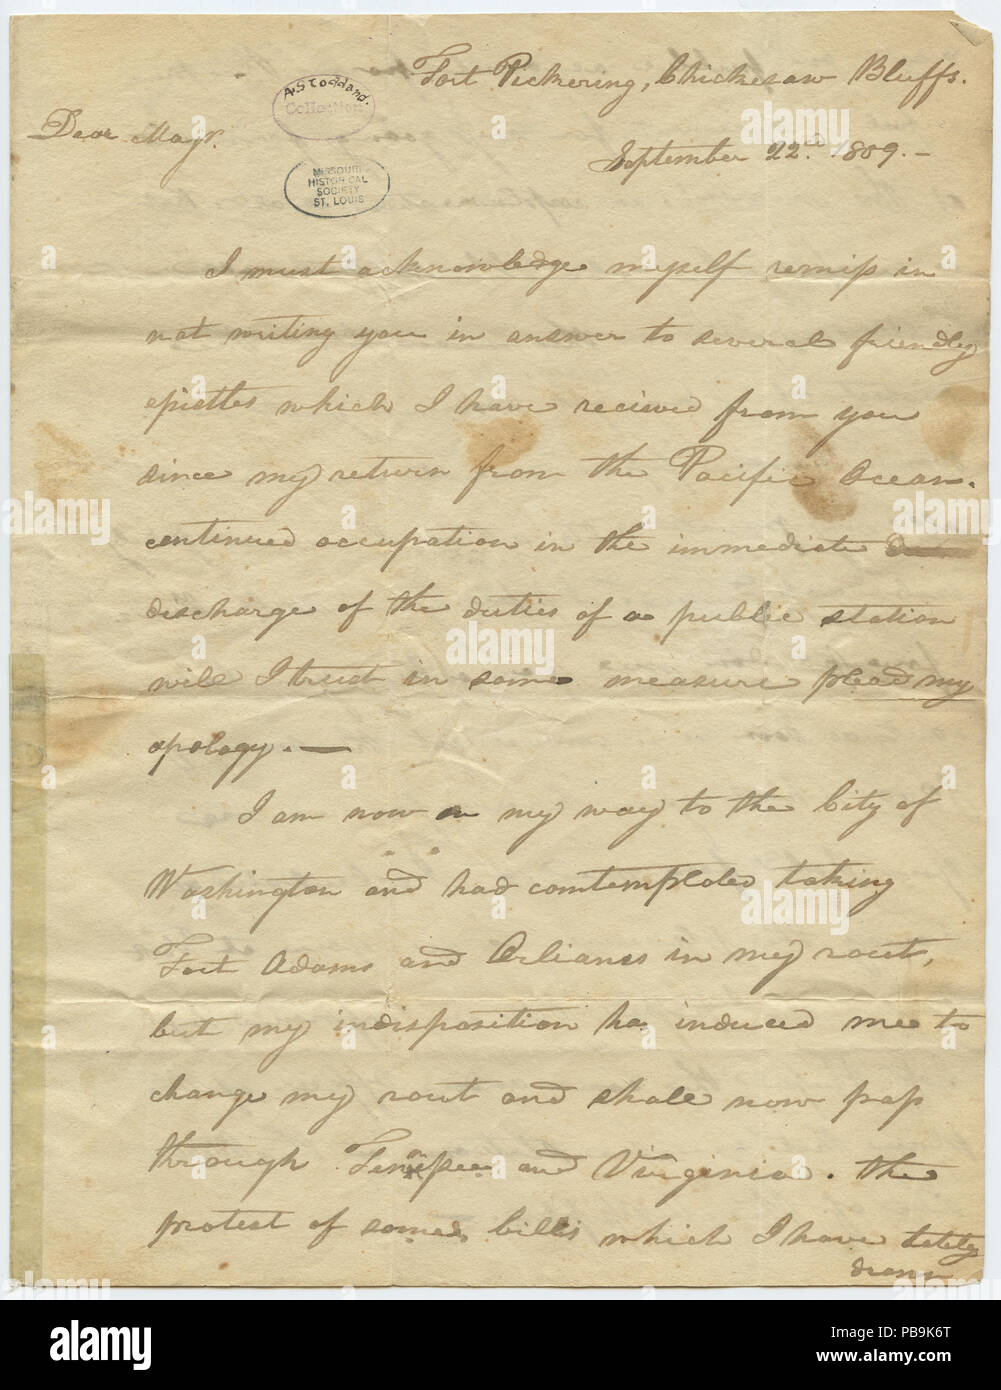 Fort Pickering, Chickesaw Bluffs.
A Stoddard.
Collection
Dear Majr.
September 22nd. 1809. —
MISSOURI
HISTORICAL
SOCIETY
ST. LOUIS
I must acknowledge myself remiss in
not writing you in answer to several friendly
epistles which I have recieved from you
since my return from the Pacific Ocean.
continued occupation in the immediate
discharge of the duties of a public station
will I trust in some measure plead my
apology. —
I am now on my way to the City of
Washington and had contemplated taking
Fort Adams and Orlianes in my rout,
but my indisposition has induced me to
change my rout and shall now pass
through and Virginia. the
protest of some bills which I have lately
drawn
alamy
alamy
alamy
alamy
alamy
alamy
alamy
alamy
alamy
alamy
alamy
alamy
alamy
Image ID: PB9K6T
www.alamy.com